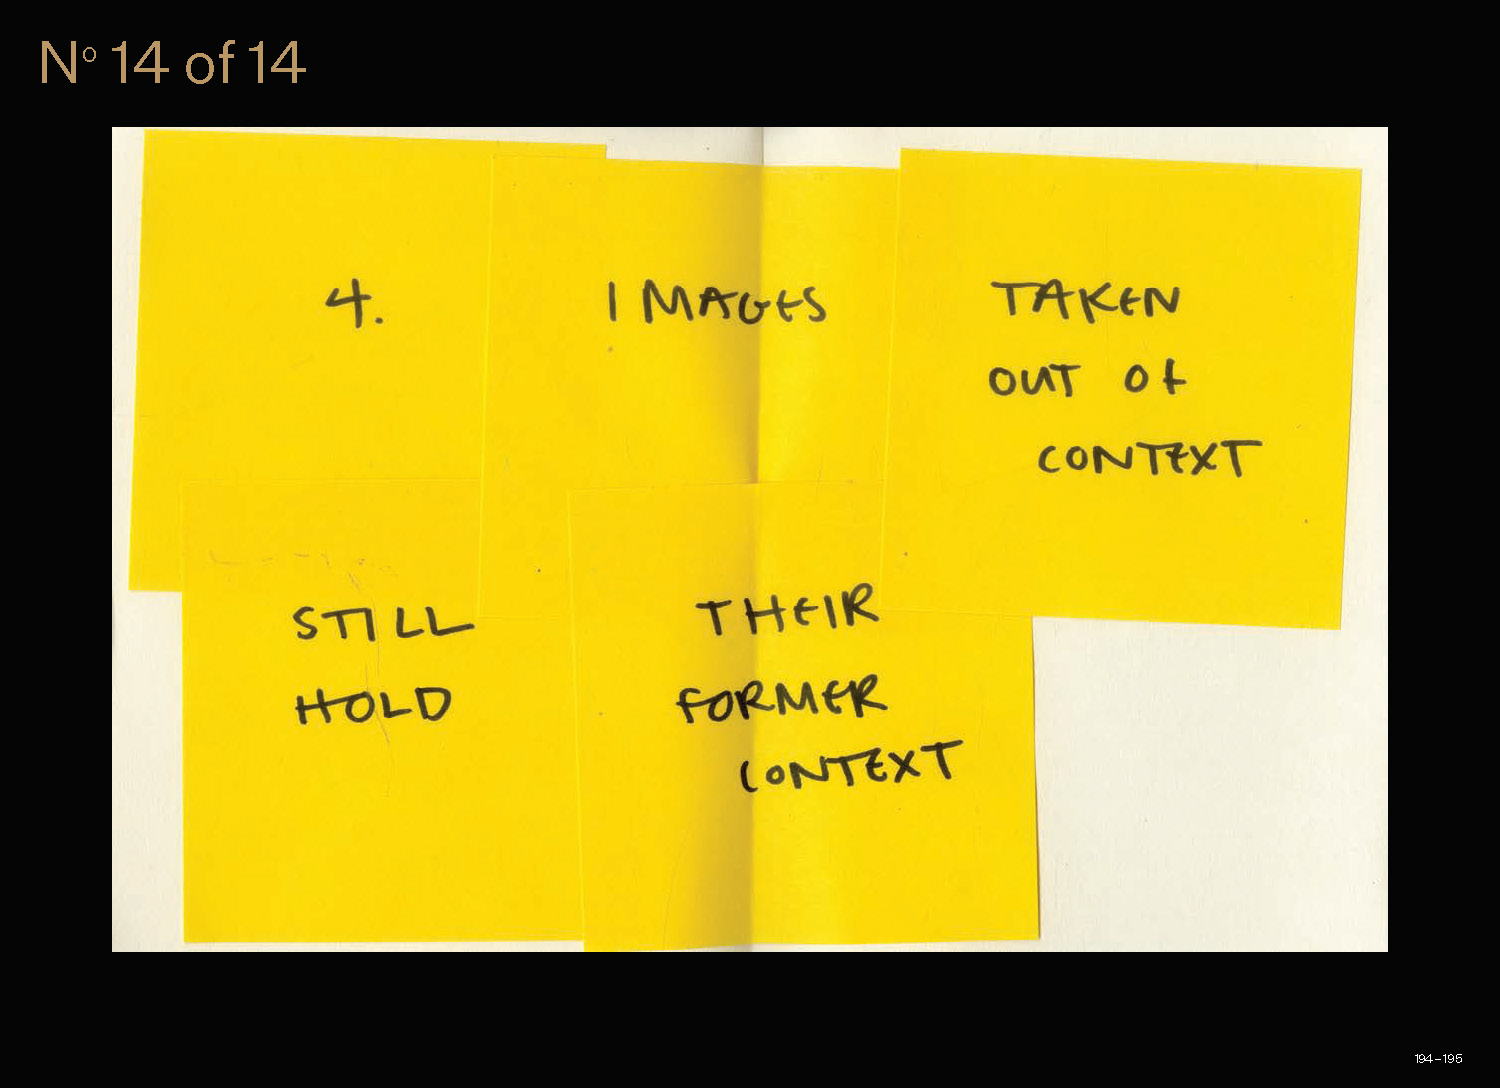 Nº 14 of 14
4.
IMAGES
TAKEN
OUT OF
CONTEXT
STILL
HOLD
THEIR
FORMER
CONTEXT
194–195